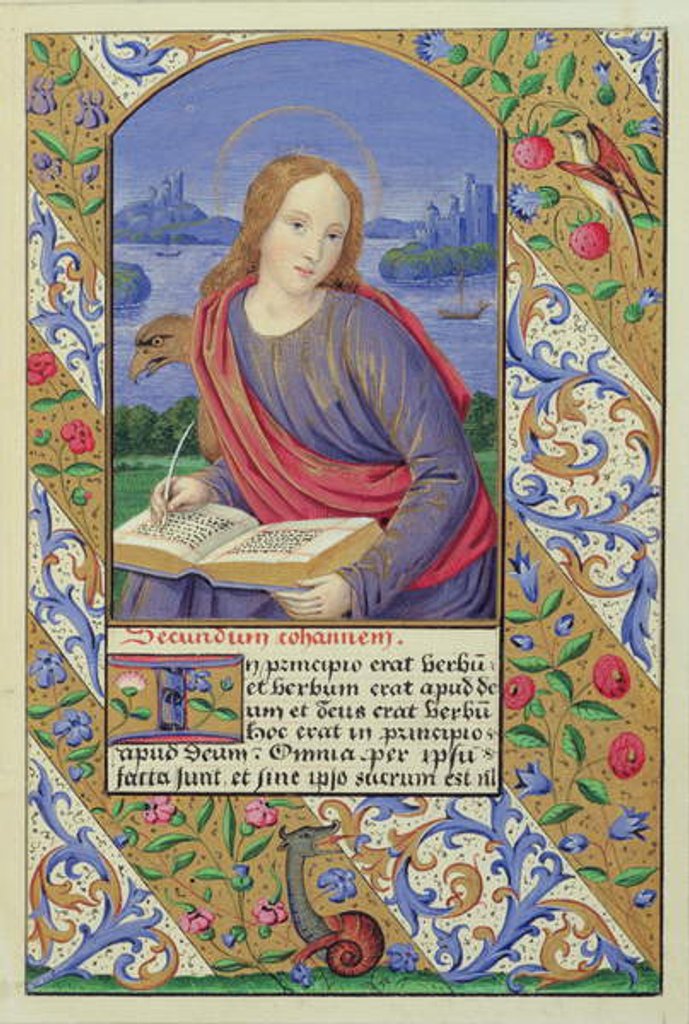 Secundum iohannem.
In principio erat verbū
et verbum erat apud de
um et deus erat verbū
hoc erat in principio
apud deum: Omnia per ipsū
facta sunt et sine ipso factum est nl